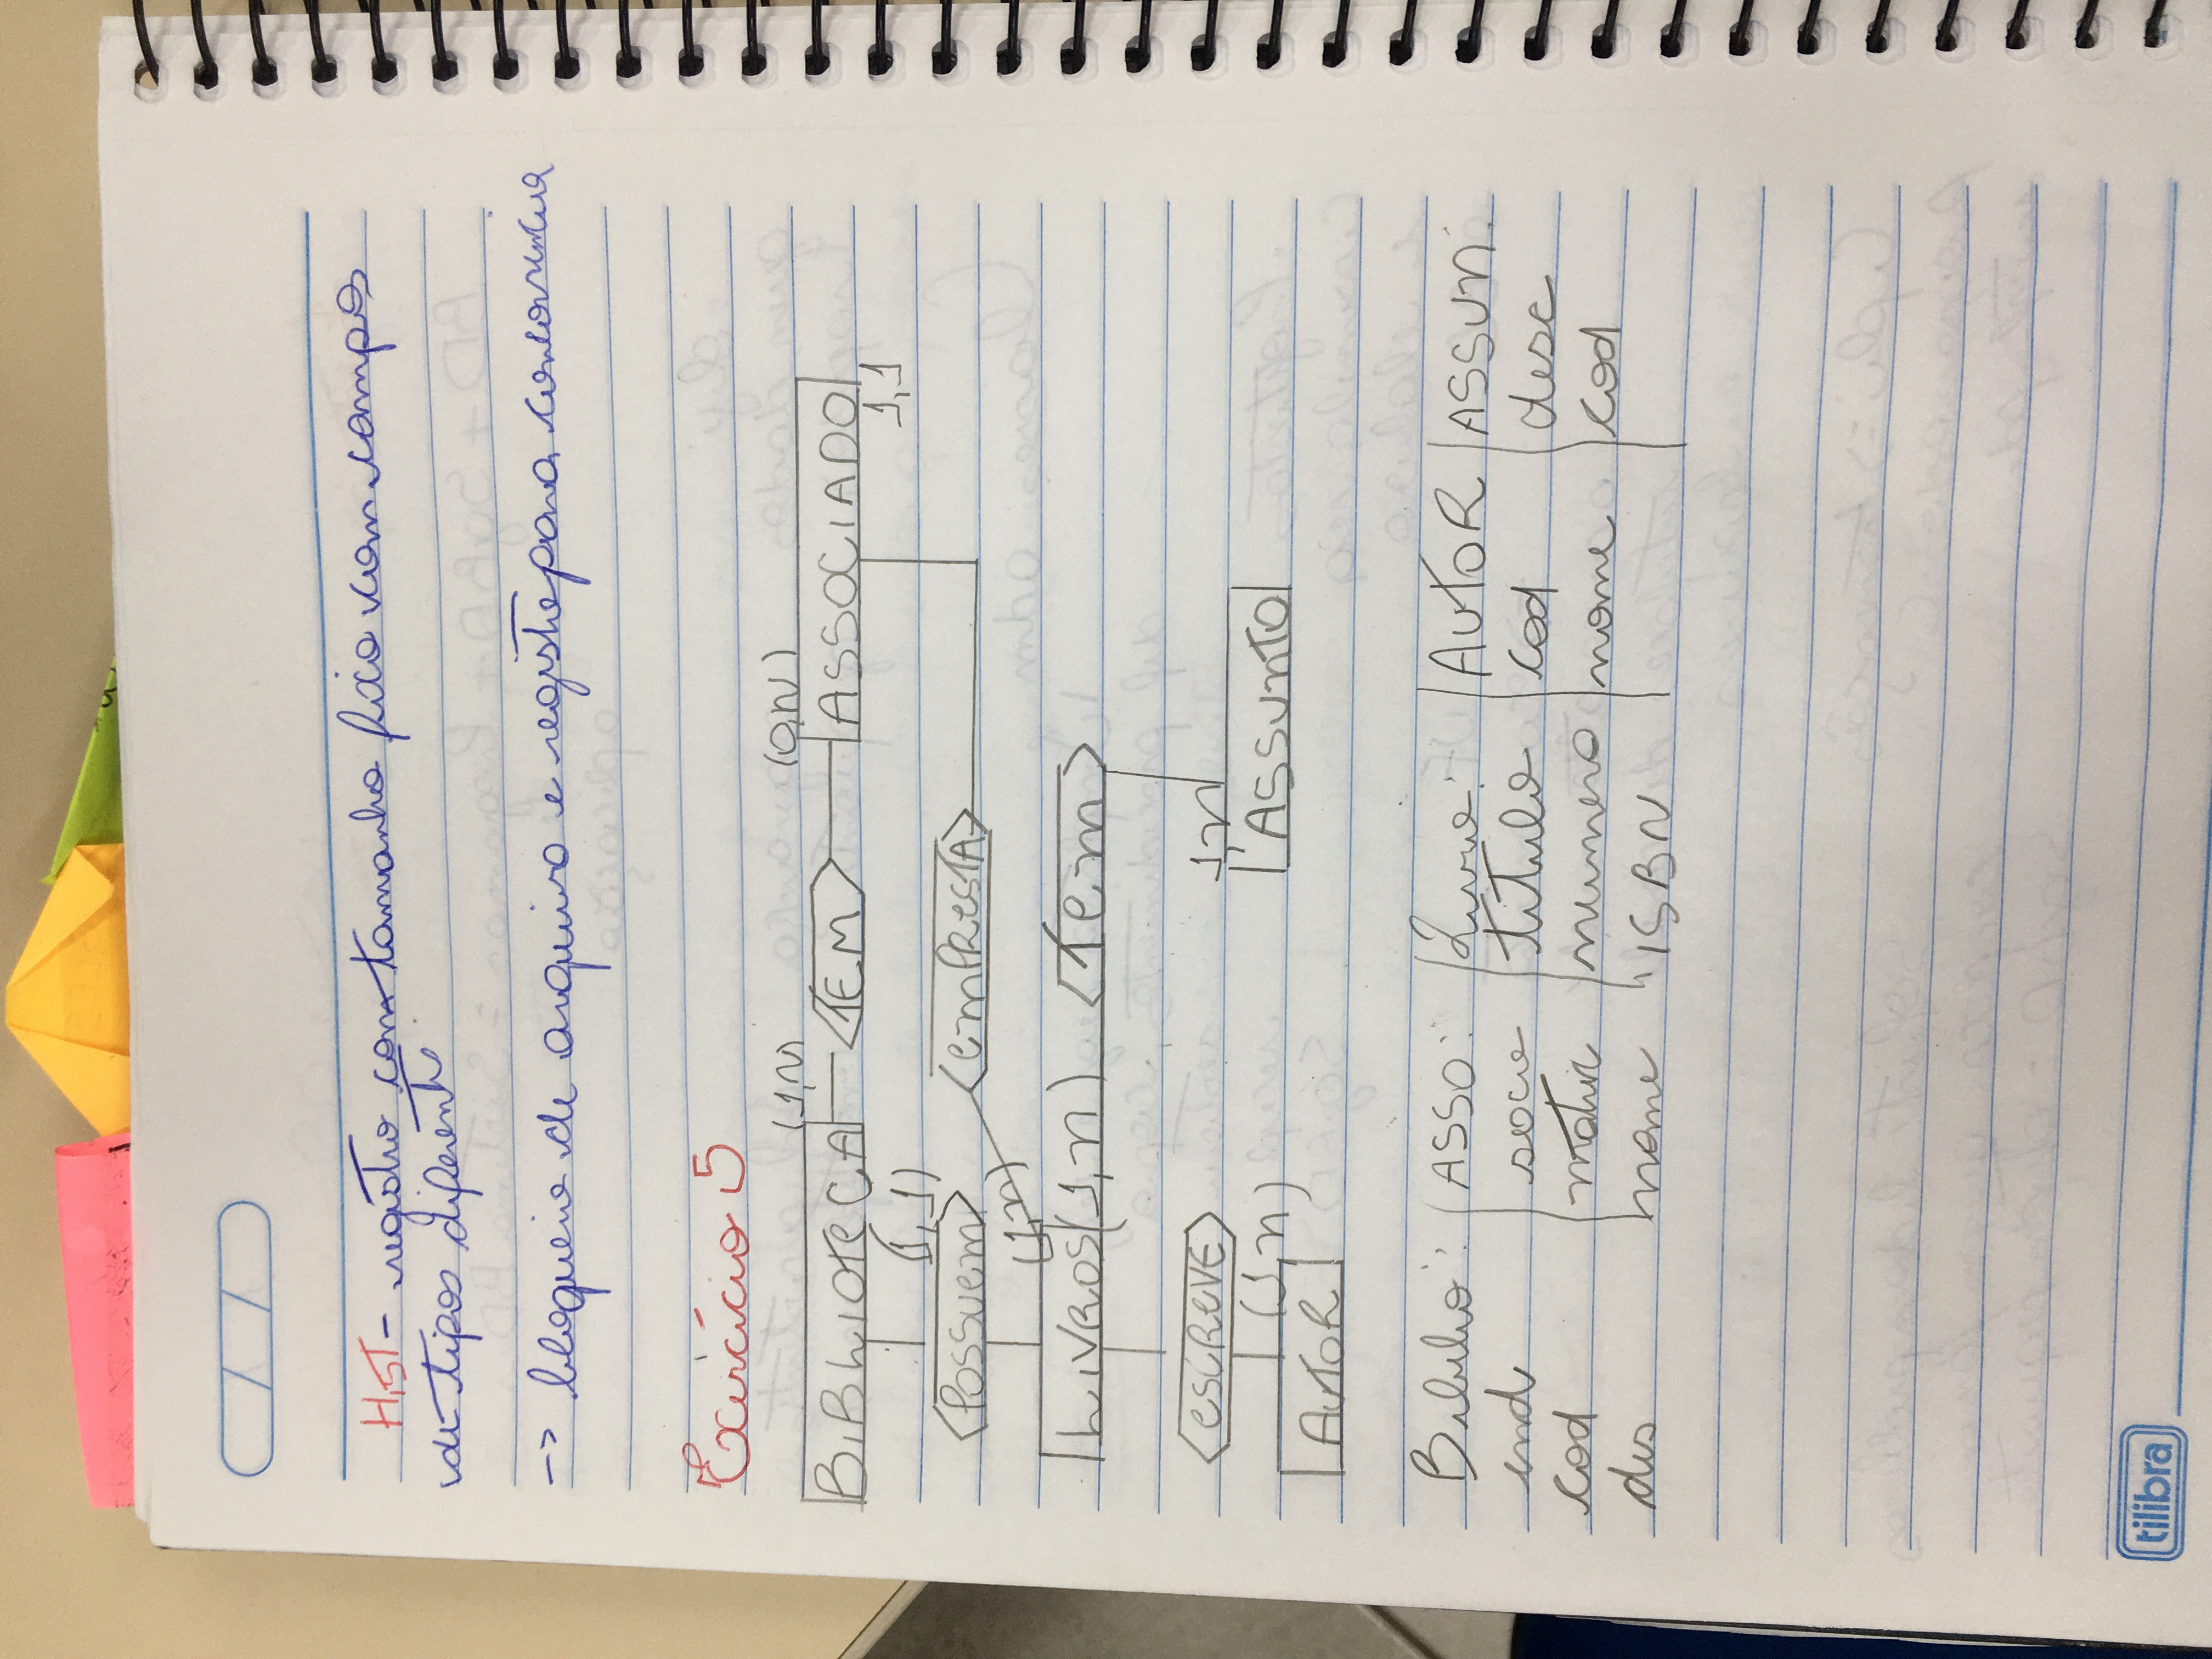 HIST - registro com tamanho fixo com campos
de tipos diferente
-> bloqueio de arquivo e registro para concorrencia
Exercício 5
(1,N) (0,N)
BIBLIOTECA TEM ASSOCIADO
(1,1) 1,1
POSSUEM EMPRESTA
(1,n)
LIVROS (1,n) Tem
ESCREVE 1,n
(1,n) ASSUNTO
AUTOR
Biblio: ASSO: Livro: AUTOR ASSUN:
end socio titulo cod desc
cod matric numero nome cod
des nome ISBN
tilibra